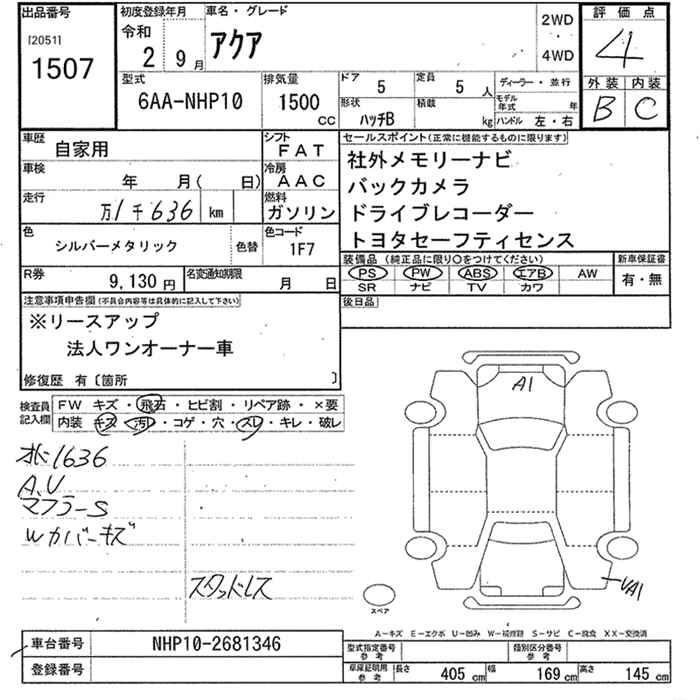 出品番号
[2051]
1507
初度登録年月
令和
2 9月
車名・グレード
アクア
2WD
4WD
評価点
4
外装 内装
B C
型式
6AA-NHP10
排気量
1500 CC
ドア 5
定員 5 人
形状 ハッチB
積載 kg
ディーラー・並行
モデル年式 年
ハンドル 左・右
車歴
自家用
シフト
FAT
車検
年 月( 日)
冷房
AAC
走行
万1千636 km
燃料
ガソリン
色
シルバーメタリック
色替
色コード
1F7
R券
9,130円
名変通知期限
月 日
セールスポイント(正常に機能するものに限ります)
社外メモリーナビ
バックカメラ
ドライブレコーダー
トヨタセーフティセンス
装備品(純正品に限り○をつけてください)
PS PW ABS エアB AW
SR ナビ TV カワ
新車保証書
有・無
後日品
注意事項申告欄(不具合内容等は具体的に記入して下さい)
※リースアップ
法人ワンオーナー車
修復歴 有〔箇所 〕
検査員記入欄
FW キズ・飛石・ヒビ割・リペア跡・×要
内装 キズ・汚レ・コゲ・穴・スレ・キレ・破レ
1636
A.U
マフラーS
Wカバーキズ
スタッドレス
A1
UA1
スペア
A-キズ E-エクボ U-凹み W-補修跡 S-サビ C-腐食 XX-交換済
車台番号
NHP10-2681346
登録番号
型式指定番号
参考
類別区分番号
参考
車庫証明用
参考
長さ 405 cm
幅 169 cm
高さ 145 cm